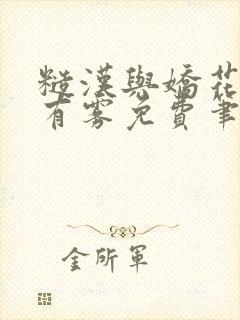 糙漢與嬌花
有霧免費筆
金所軍